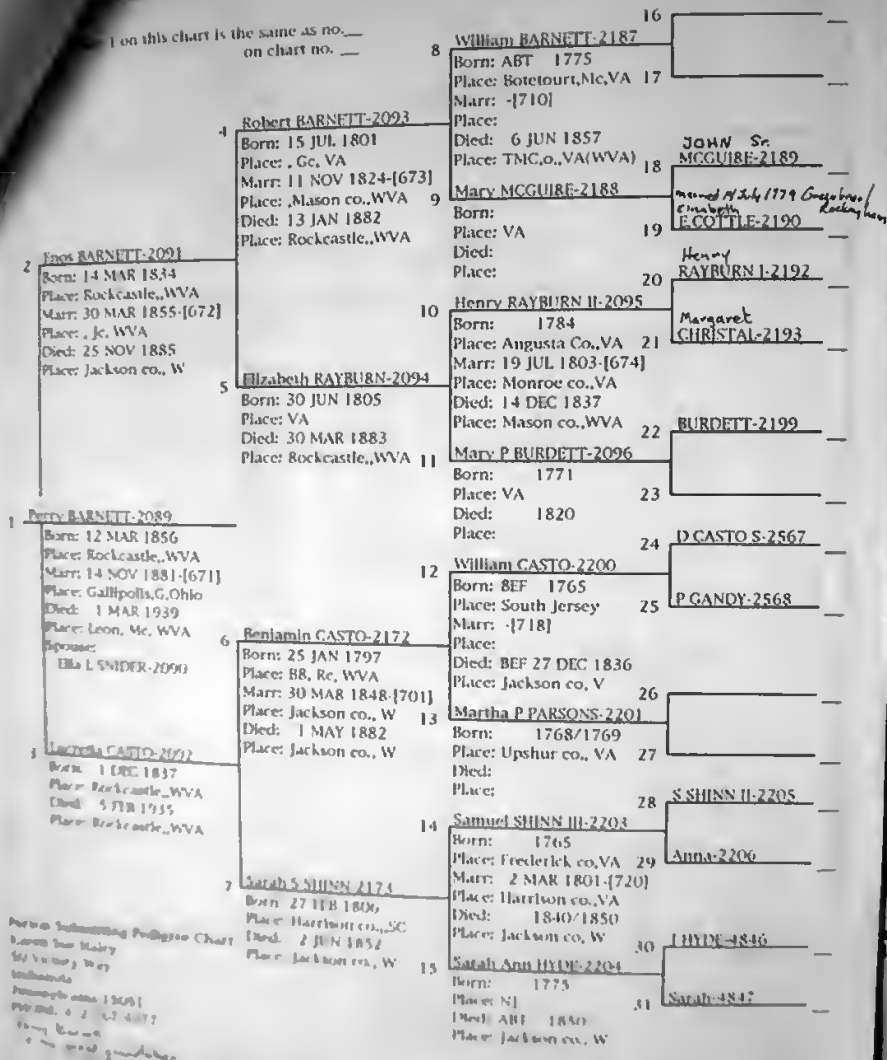 1 on this chart is the same as no. __
on chart no. __
1 Perry BARNETT-2089
Born: 12 MAR 1856
Place: Rockcastle,,WVA
Marr: 14 NOV 1881-[671]
Place: Gallipolis,G,Ohio
Died: 1 MAR 1939
Place: Leon, Mc, WVA
Spouse:
Ella L SNIDER-2090
2 Enos BARNETT-2091
Born: 14 MAR 1834
Place: Rockcastle,,WVA
Marr: 30 MAR 1855-[672]
Place: , Jc, WVA
Died: 25 NOV 1885
Place: Jackson co., W
3 Lucretia CASTO-2092
Born: 1 DEC 1837
Place: Rockcastle,,WVA
Died: 5 FEB 1935
Place: Rockcastle,,WVA
4 Robert BARNETT-2093
Born: 15 JUL 1801
Place: , Gc, VA
Marr: 11 NOV 1824-[673]
Place: ,Mason co.,WVA
Died: 13 JAN 1882
Place: Rockcastle,,WVA
5 Elizabeth RAYBURN-2094
Born: 30 JUN 1805
Place: VA
Died: 30 MAR 1883
Place: Rockcastle,,WVA
6 Benjamin CASTO-2172
Born: 25 JAN 1797
Place: BB, Rc, WVA
Marr: 30 MAR 1848-[701]
Place: Jackson co., W
Died: 1 MAY 1882
Place: Jackson co., W
7 Sarah S SHINN-2173
Born: 27 FEB 1806
Place: Harrison co.,,SC
Died: 2 JUN 1852
Place: Jackson co., W
8 William BARNETT-2187
Born: ABT 1775
Place: Botetourt,Mc,VA
Marr: -[710]
Place:
Died: 6 JUN 1857
Place: TMC,o.,VA(WVA)
9 Mary MCGUIRE-2188
Born:
Place: VA
Died:
Place:
10 Henry RAYBURN II-2095
Born: 1784
Place: Augusta Co.,VA
Marr: 19 JUL 1803-[674]
Place: Monroe co.,VA
Died: 14 DEC 1837
Place: Mason co.,WVA
11 Mary P BURDETT-2096
Born: 1771
Place: VA
Died: 1820
Place:
12 William CASTO-2200
Born: BEF 1765
Place: South Jersey
Marr: -[718]
Place:
Died: BEF 27 DEC 1836
Place: Jackson co, V
13 Martha P PARSONS-2201
Born: 1768/1769
Place: Upshur co., VA
Died:
Place:
14 Samuel SHINN III-2203
Born: 1765
Place: Frederick co,VA
Marr: 2 MAR 1801-[720]
Place: Harrison co.,VA
Died: 1840/1850
Place: Jackson co, W
15 Sarah Ann HYDE-2204
Born: 1775
Place: NJ
Died: ABT 1850
Place: Jackson co, W
16
17
JOHN Sr.
18 MCGUIRE-2189
married July 1779 Rockingham
Elizabeth
19 E.COTTLE-2190
Henry
20 RAYBURN I-2192
Margaret
21 CHRISTAL-2193
22 BURDETT-2199
23
24 D CASTO S-2567
25 P GANDY-2568
26
27
28 S SHINN II-2205
29 Anna-2206
30 I HYDE-4846
31 Sarah-4847
Person Submitting Pedigree Chart
Way
Pennsylvania